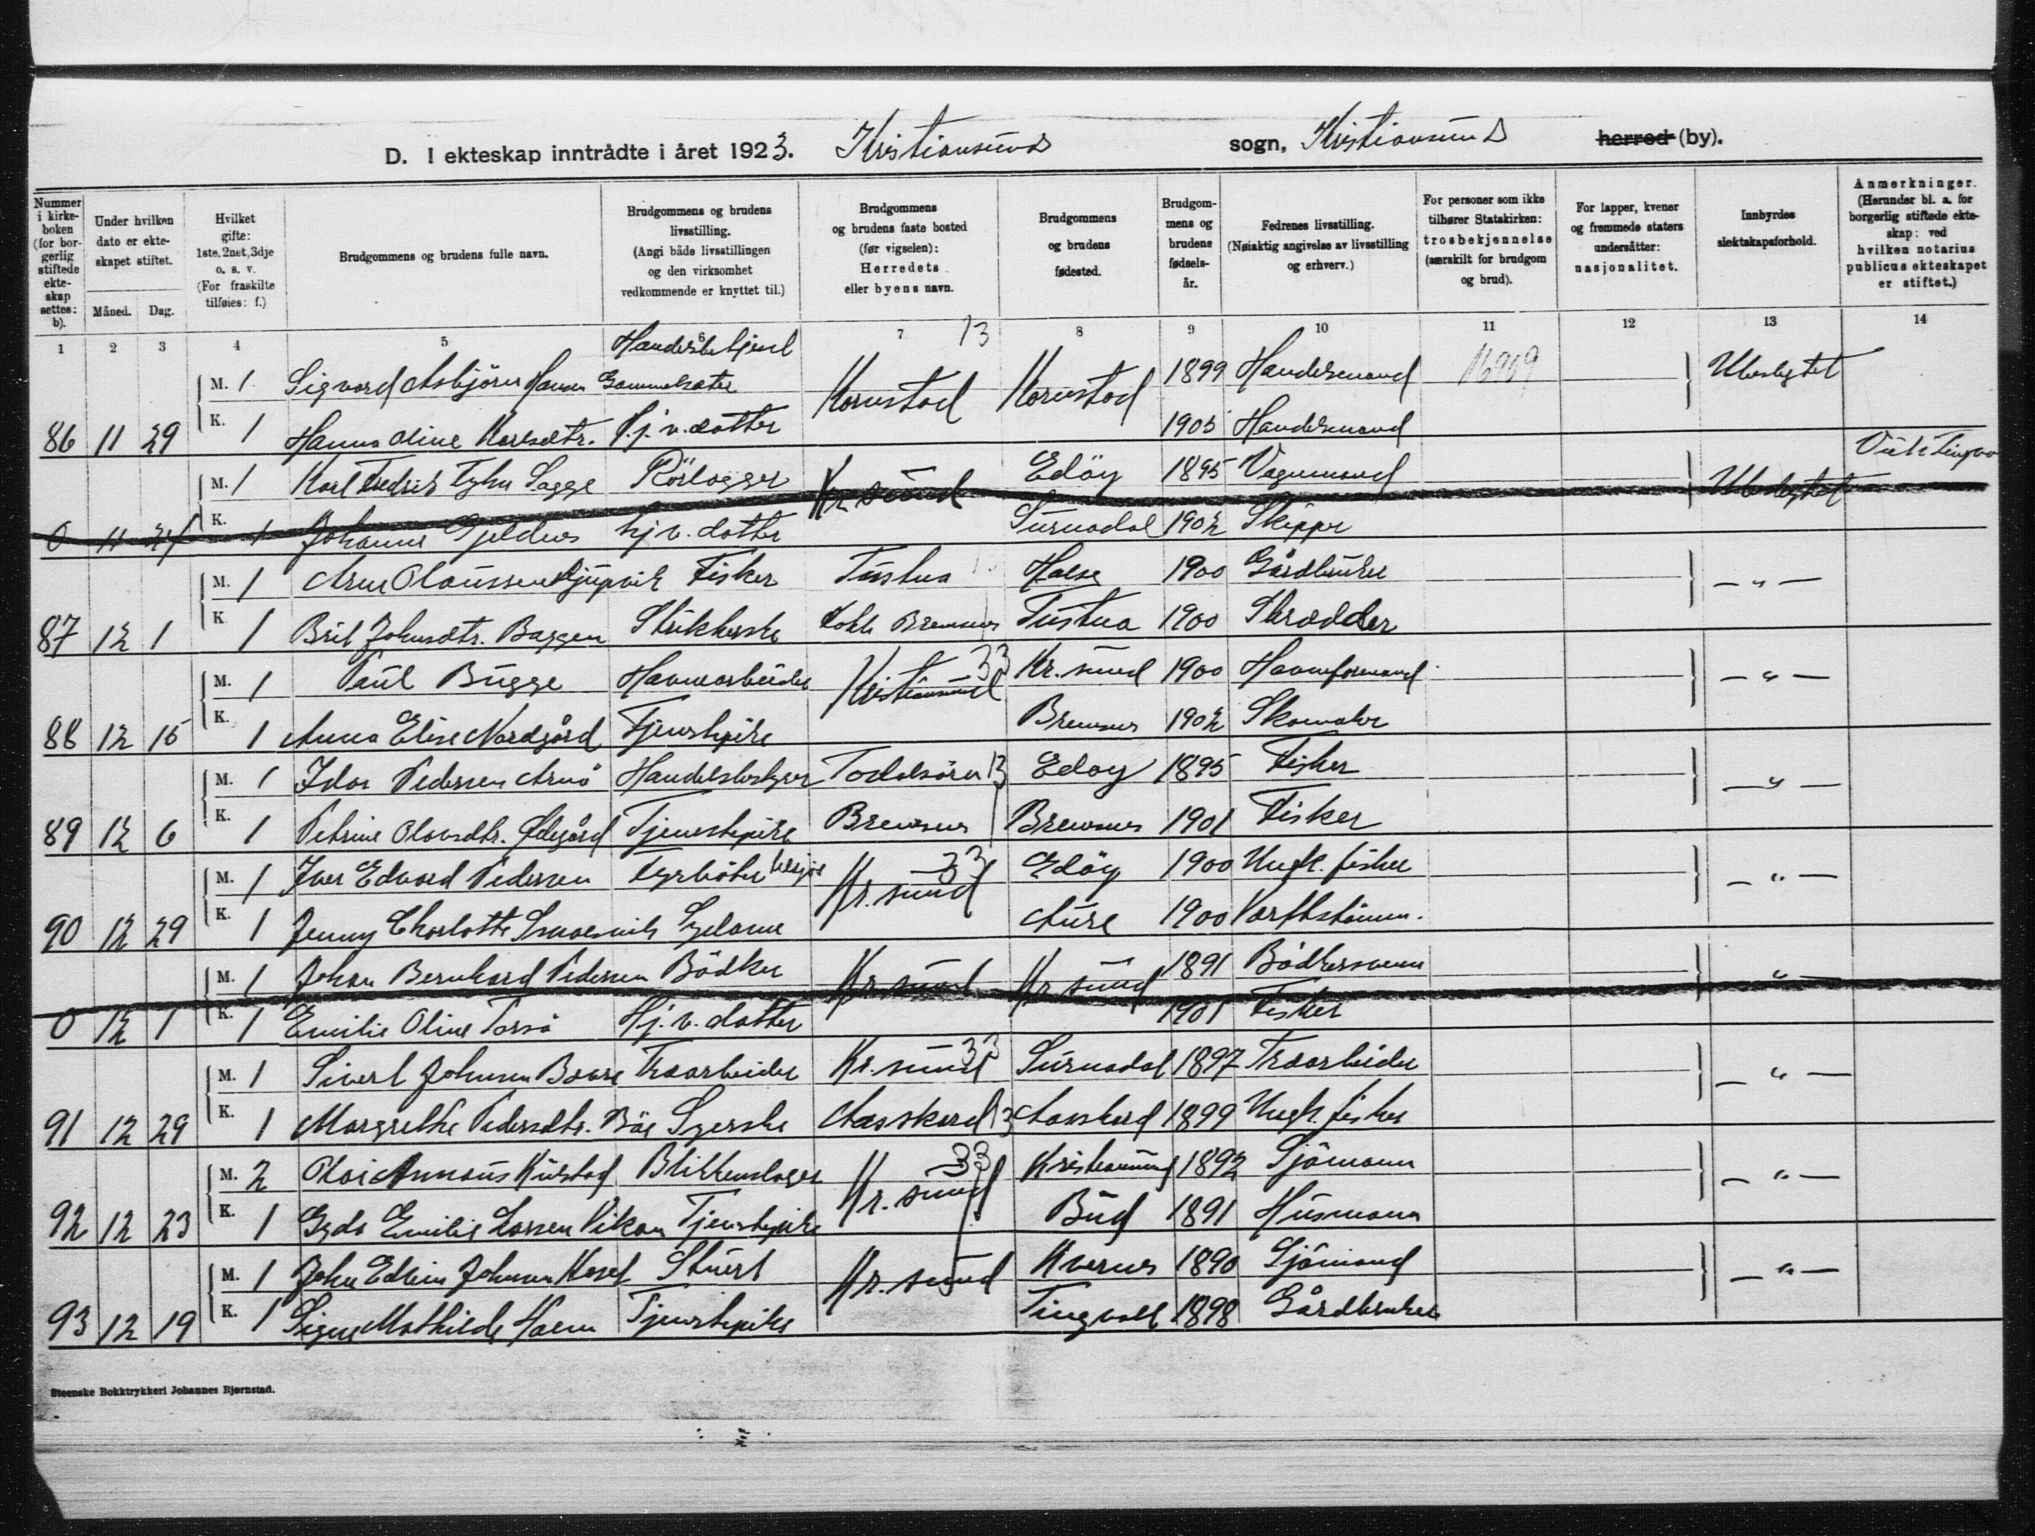 D. I ekteskap inntrådte i året 1923. Kristiansund sogn, Kristiansund herred (by).
Nummer i kirkeboken (for borgerlig stiftede ekteskap settes: b).
Under hvilken dato er ekteskapet stiftet.
Måned. Dag.
Hvilket gifte: 1ste, 2net, 3dje o. s. v. (For fraskilte tilføies: f.)
Brudgommens og brudens fulle navn.
Brudgommens og brudens livsstilling. (Angi både livsstillingen og den virksomhet vedkommende er knyttet til.)
Brudgommens og brudens faste bosted (før vigselen): Herredets eller byens navn.
Brudgommens og brudens fødested.
Brudgommens og brudens fødselsår.
Fedrenes livsstilling. (Nøiaktig angivelse av livsstilling og erhverv.)
For personer som ikke tilhører Statskirken: trosbekjennelse (særskilt for brudgom og brud).
For lapper, kvener og fremmede staters undersåtter: nasjonalitet.
Innbyrdes slektskapsforhold.
Anmerkninger. (Herunder bl. a. for borgerlig stiftede ekteskap: ved hvilken notarius publicus ekteskapet er stiftet.)
1 2 3 4 5 6 7 13 8 9 10 11 12 13 14
Handelsbetjent
M. 1 Sigvard Asbjörn Hansen Gammelsæter Kornstad Kornstad 1899 Handelsmand 16909 Ubeslegtet
86 11 29 K. 1 Hanna Oline Karlsdtr. Hj. v. datter 1905 Handelsmand
M. 1 Karl Fredrik Tyhn Sagge Rörlegger Kr. sund Edöy 1895 Vognmand Ubeslegtet
0 11 24 K. 1 Johanne Gjeldnes hj v. datter Surnadal 1902 Skipper
M. 1 Arne Olaussen Djupvik Fisker Tustna Halse 1900 Gårdbruker — " —
87 12 1 K. 1 Brit Johnsdtr. Baggen Strikkerske Bremsnes Tustna 1900 Skrædder
M. 1 Paul Bugge Havnearbeider Kristiansund 33 Kr. sund 1900 Havneformand — " —
88 12 15 K. 1 Anna Elise Nordgård Tjenestepike Bremsnes 1902 Skomaker
M. 1 Idar Pedersen Arnö Handelsbestyrer Toddsöra 13 Edøy 1895 Fisker — " —
89 12 6 K. 1 Petrine Olavsdtr. Ødegård Tjenestepike Bremsnes Bremsnes 1901 Fisker
M. 1 Iver Edvard Pedersen Fyrböter Kr. sund 33 Edöy 1900 Ungk. fisker — " —
90 12 29 K. 1 Jenny Charlotte Smaesvik Sydame Aure 1900 Værftstömm.
M. 1 Johan Bernhard Pedersen Bödker Kr. sund Kr. sund 1891 Bödkersvenn — " —
0 12 1 K. 1 Emilie Oline Torsö Hj. v. datter 1901 Fisker
M. 1 Sivert Johnsen Bævre Træarbeider Kr. sund 33 Surnadal 1897 Træarbeider — " —
91 12 29 K. 1 Margrethe Pedersdtr. Böe Syerske Aasskard 13 Aasskard 1899 Ungk. fisker
M. 2 Olai Annanus Kulstad Blikkenslager Kr. sund 33 Kristiansund 1892 Sjömann — " —
92 12 23 K. 1 Gyda Emilie Larsen Vikan Tjenestepike Bud 1891 Husmann
M. 1 John Edvin Johnsen Stuert Kr. sund Kvernes 1890 Sjömand — " —
93 12 19 K. 1 Signe Mathilde Holm Tjenestepike Tingvoll 1898 Gårdbruker
Steenske Bokktrykkeri Johannes Bjørnstad.